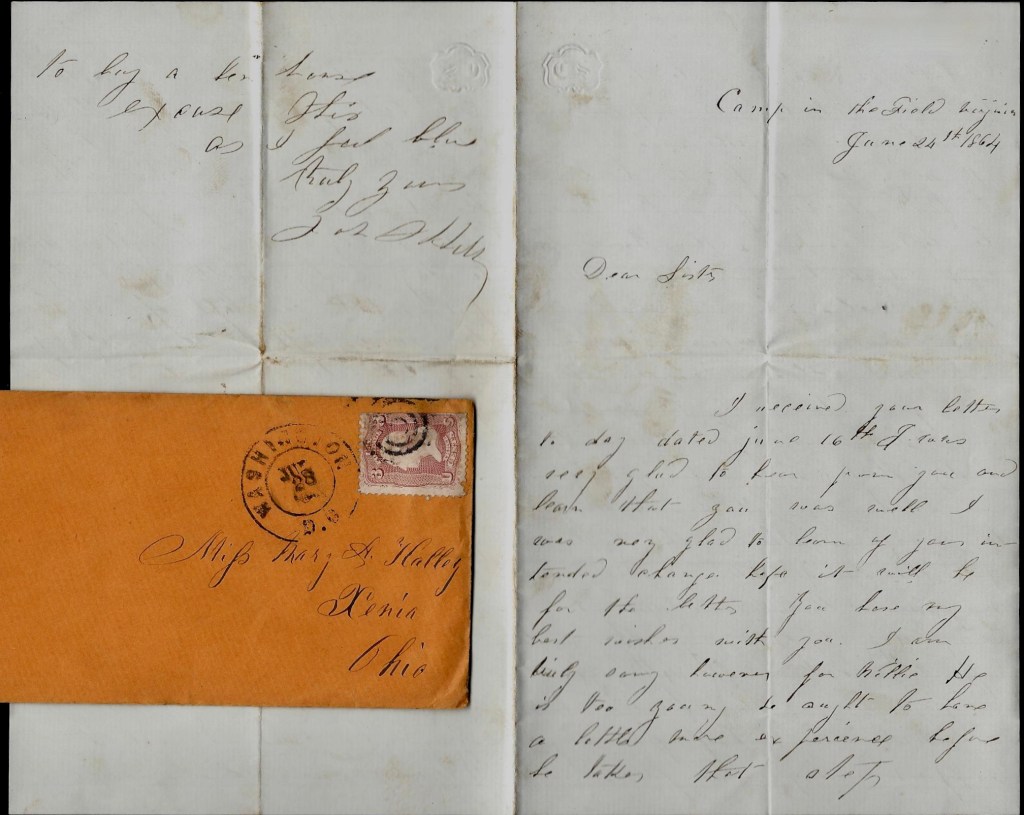 to buy a ten house
excuse this
as I feel blue
truly yours
Camp in the Field Virginia
June 24th 1864
Dear Sister
I received your letter
to day dated june 16th I was
very glad to hear from you and
learn that you was well I
was very glad to learn of your in-
tended change hope it will be
for the better You have my
best wishes with you. I am
truly sorry however for Willie He
is too young he ought to have
a little more experience before
he takes that step
WASHINGTON
D.C.
Miss Mary A. Halley
Xenia
Ohio